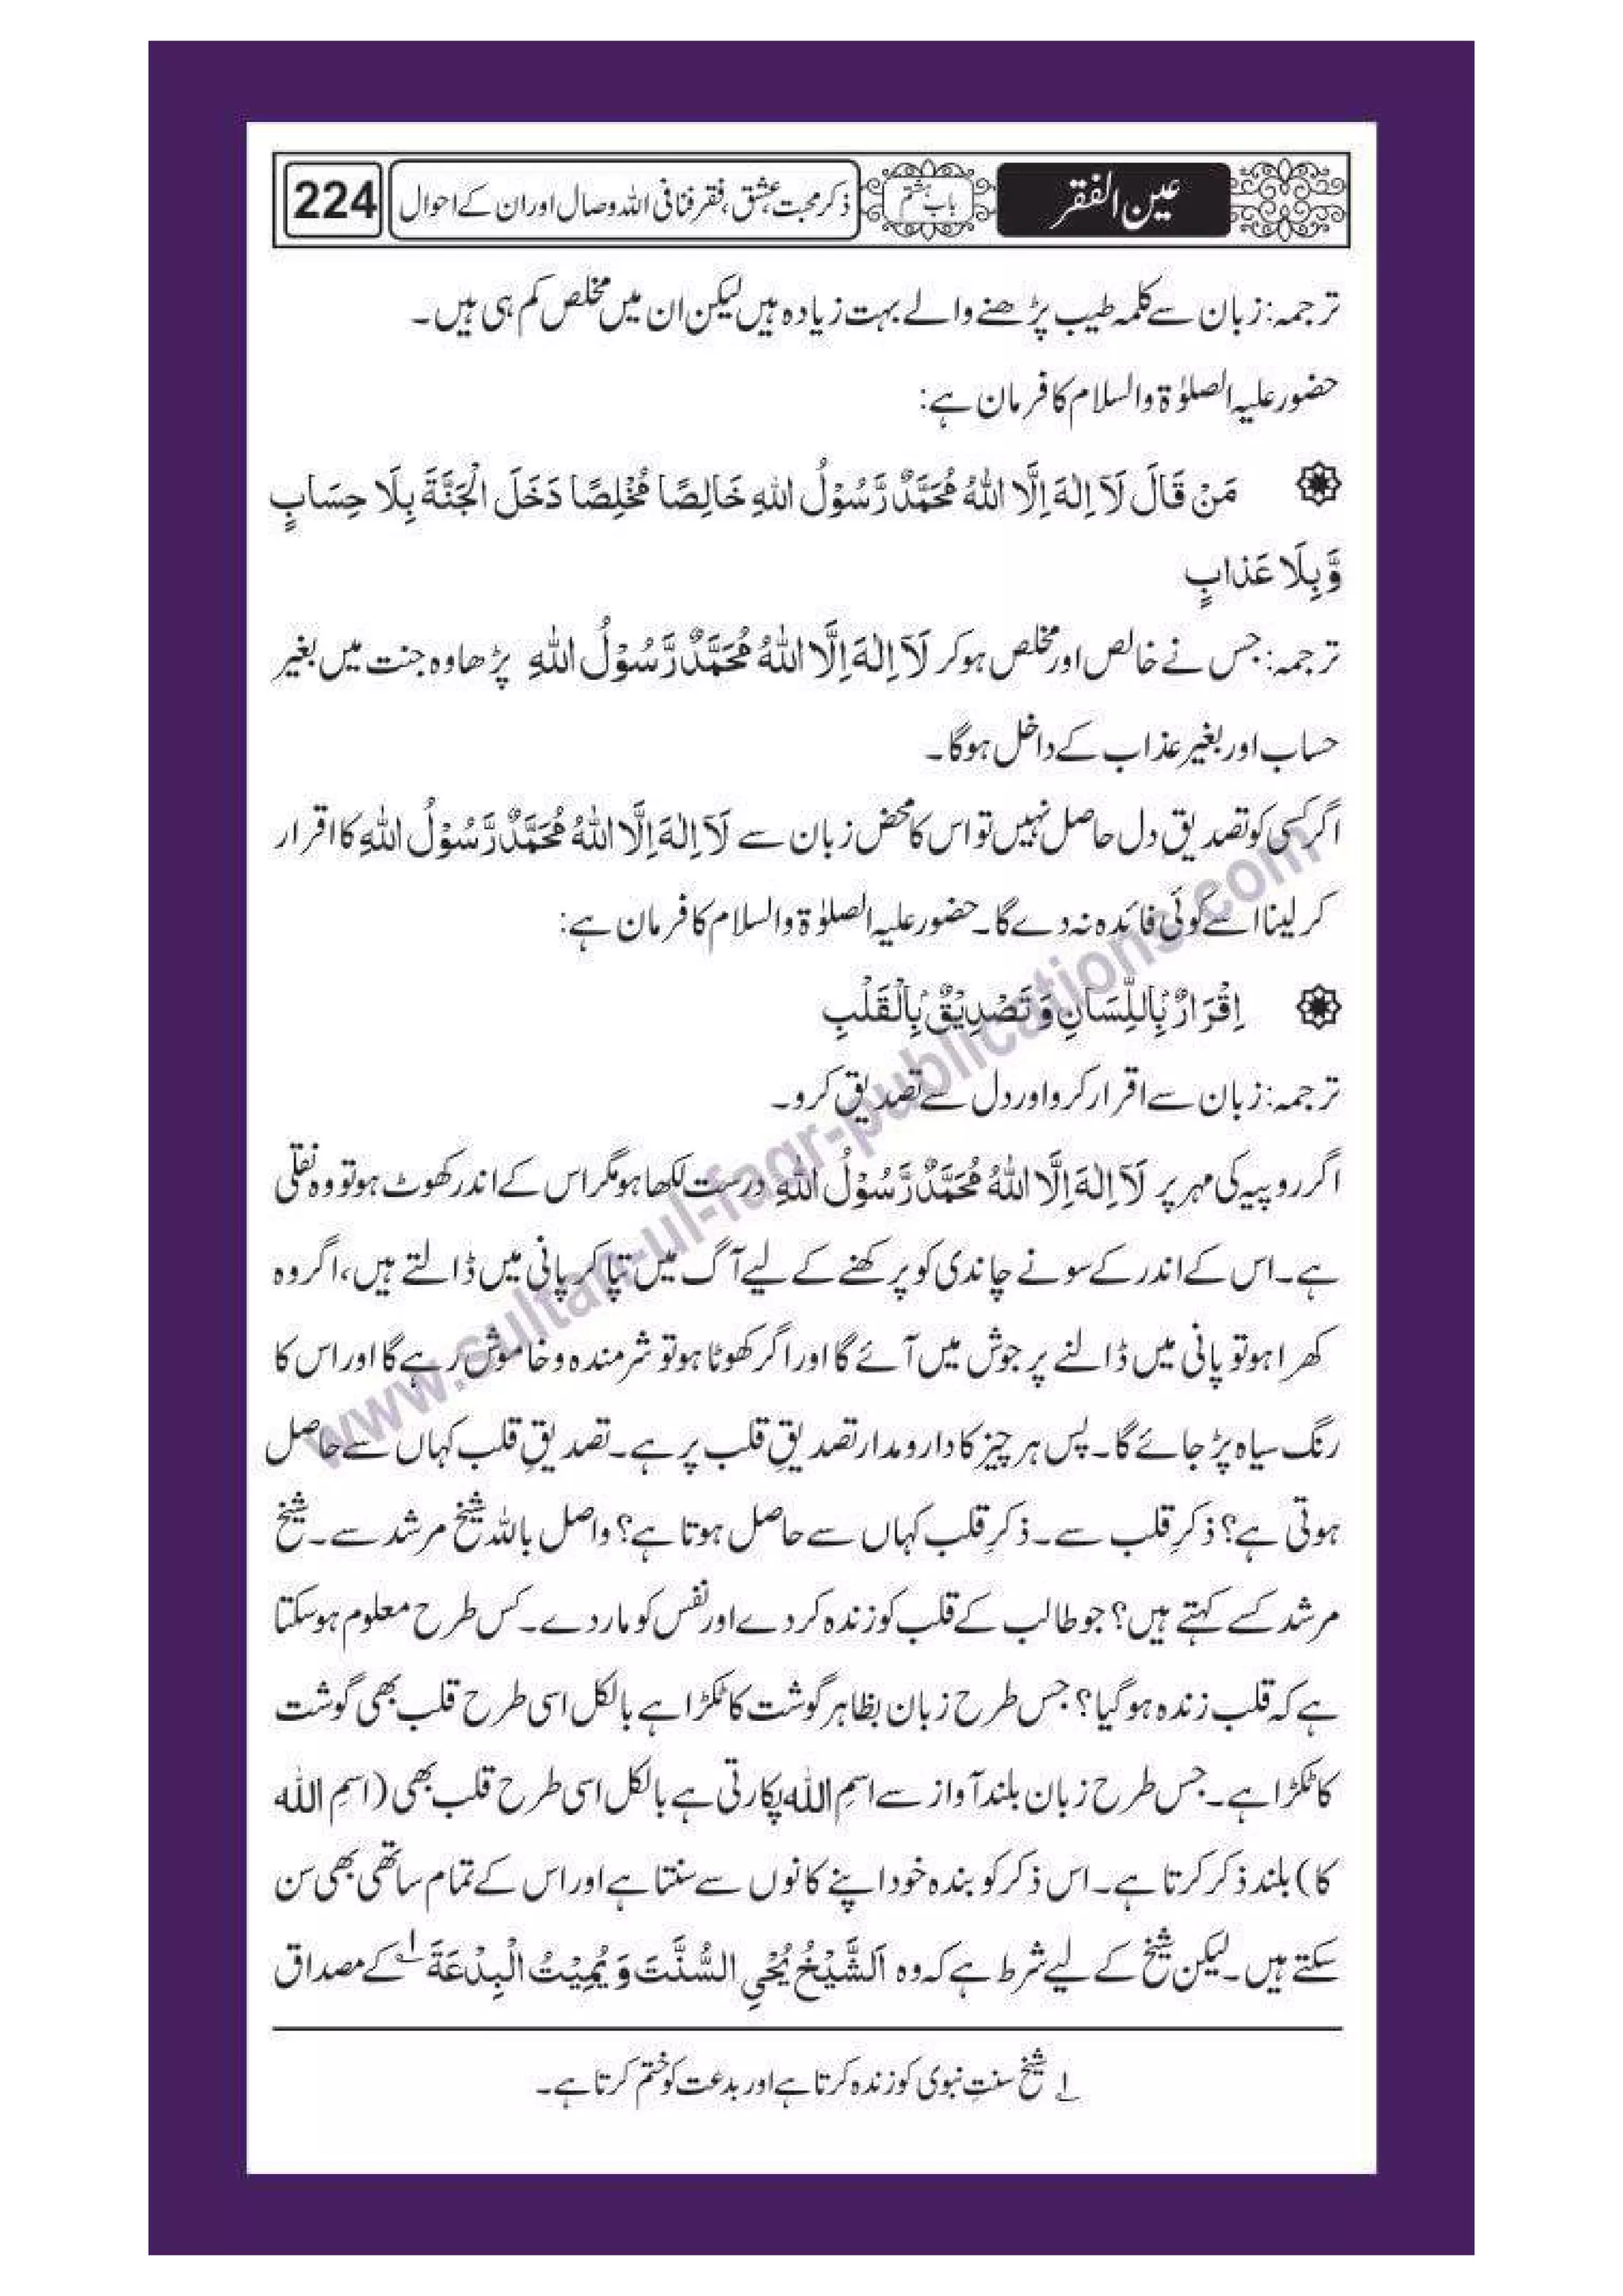 عین الفقر باب ہشتم ذکر محبت، عشق، فقر فنا فی اللہ وصال اور ان کے احوال 224
ترجمہ: زبان سے کلمہ طیب پڑھنے والے بہت زیادہ ہیں لیکن ان میں مخلص کم ہی ہیں۔
حضور علیہ الصلوٰۃ والسلام کا فرمان ہے:
مَنْ قَالَ لَآ اِلٰهَ اِلَّا اللهُ مُحَمَّدٌ رَّسُوْلُ اللهِ خَالِصًا مُخْلِصًا دَخَلَ الْجَنَّةَ بِلَا حِسَابٍ
وَّبِلَا عَذابٍ
ترجمہ: جس نے خالص اور مخلص ہو کر لَآ اِلٰهَ اِلَّا اللهُ مُحَمَّدٌ رَّسُوْلُ اللهِ پڑھا وہ جنت میں بغیر
حساب اور بغیر عذاب کے داخل ہوگا۔
اگر کسی کو تصدیق دل حاصل نہیں تو اس کا محض زبان سے لَآ اِلٰهَ اِلَّا اللهُ مُحَمَّدٌ رَّسُوْلُ اللهِ کا اقرار
کر لینا اسے کوئی فائدہ نہ دے گا۔ حضور علیہ الصلوٰۃ والسلام کا فرمان ہے:
اِقْرَارٌ بِاللِّسَانِ وَ تَصْدِيْقٌ بِالْقَلْبِ
ترجمہ: زبان سے اقرار کرو اور دل سے تصدیق کرو۔
اگر روپیہ کی مہر پر لَآ اِلٰهَ اِلَّا اللهُ مُحَمَّدٌ رَّسُوْلُ اللهِ درست لکھا ہو مگر اس کے اندر کھوٹ ہو تو وہ نقلی
ہے۔ اس کے اندر کے سونے چاندی کو پرکھنے کے لیے آگ میں تپا کر پانی میں ڈالتے ہیں، اگر وہ
کھرا ہو تو پانی میں ڈالنے پر جوش میں آئے گا اور اگر کھوٹا ہو تو شرمندہ و خاموش رہے گا اور اس کا
رنگ سیاہ پڑ جائے گا۔ پس ہر چیز کا دارومدار تصدیقِ قلب پر ہے۔ تصدیقِ قلب کہاں سے حاصل
ہوتی ہے؟ ذکرِ قلب سے۔ ذکرِ قلب کہاں سے حاصل ہوتا ہے؟ واصل باللہ شیخ مرشد سے۔ شیخ
مرشد کسے کہتے ہیں؟ جو طالب کے قلب کو زندہ کر دے اور نفس کو مار دے۔ کس طرح معلوم ہو سکتا
ہے کہ قلب زندہ ہو گیا؟ جس طرح زبان بظاہر گوشت کا ٹکڑا ہے بالکل اسی طرح قلب بھی گوشت
کا ٹکڑا ہے۔ جس طرح زبان بلند آواز سے اسمِ اللہ پکارتی ہے بالکل اسی طرح قلب بھی (اسمِ اللہ
کا) بلند ذکر کرتا ہے۔ اس ذکر کو بندہ خود اپنے کانوں سے سنتا ہے اور اس کے تمام ساتھی بھی سن
سکتے ہیں۔ لیکن شیخ کے لیے شرط ہے کہ وہ اَلشَّيْخُ يُحْيِ السُّنَّتَ وَ يُمِيْتُ الْبِدْعَةَ ۱ کے مصداق
۱ شیخ سنتِ نبوی کو زندہ کرتا ہے اور بدعت کو ختم کرتا ہے۔
www.sultan-ul-faqr-publications.com